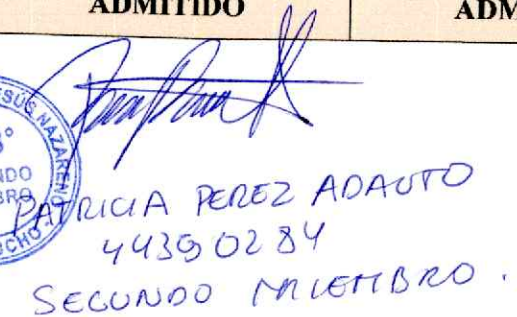 ADMITIDO
ADM
JESÚS NAZARENO
PATRICIA PEREZ ADAUTO
44390284
SEGUNDO MIEMBRO.